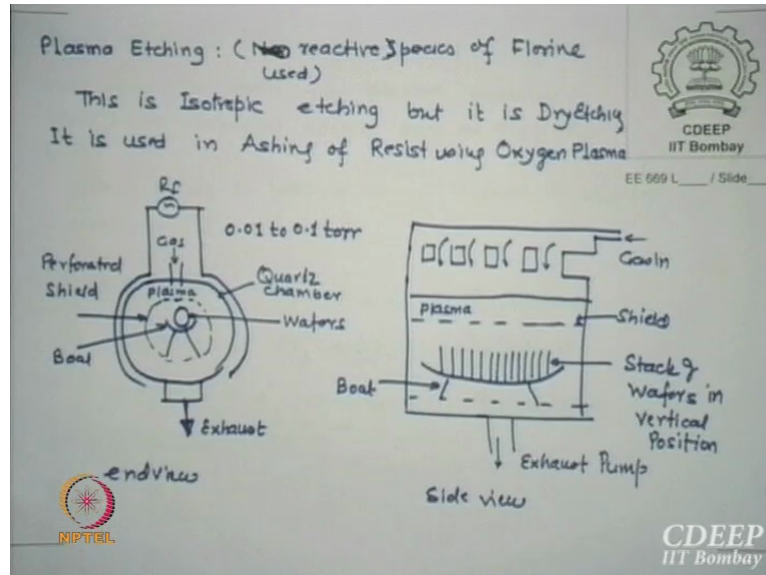 Plasma Etching : ( reactive Species of Florine
used)
This is Isotropic etching but it is DryEtchig
It is used in Ashing of Resist using Oxygen Plasma
CDEEP
IIT Bombay
EE 669 L____ / Slide____
Rf
0.01 to 0.1 torr
Gas
Perforated
Shield
Plasma
Quartz
chamber
Wafers
Boat
Exhaust
endview
Gas In
Plasma
Shield
Boat
Stack of
Wafers in
Vertical
Position
Exhaust Pump
Side view
NPTEL
CDEEP
IIT Bombay